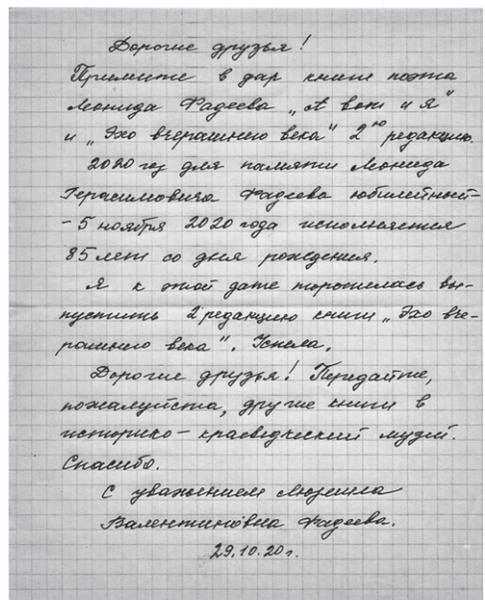 Дорогие друзья!
Примите в дар книги поэта
Леонида Фадеева „А вот и я"
и „Эхо вчерашнего века" 2ую редакцию.
2020 год для памяти Леонида
Герасимовича Фадеева юбилейный -
- 5 ноября 2020 года исполняется
85 лет со дня рождения.
Я к этой дате торопилась вы-
пустить 2 редакцию книги „Эхо вче-
рашнего века". Успела.
Дорогие друзья! Передайте,
пожалуйста, другие книги в
историко-краеведческий музей.
Спасибо.
С уважением Людмила
Валентиновна Фадеева.
29.10.20г.